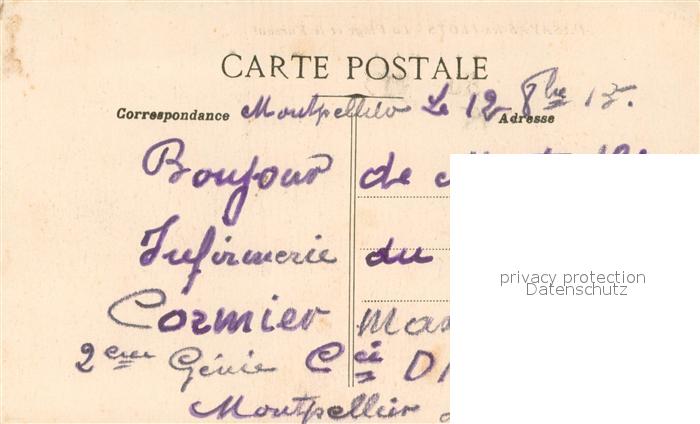 CARTE POSTALE
Correspondance Montpellier Le 12 8bre 15.
Adresse
Bonjour de
Infirmerie du
Cormier
2eme Génie Cie
Montpellier
privacy protection
Datenschutz